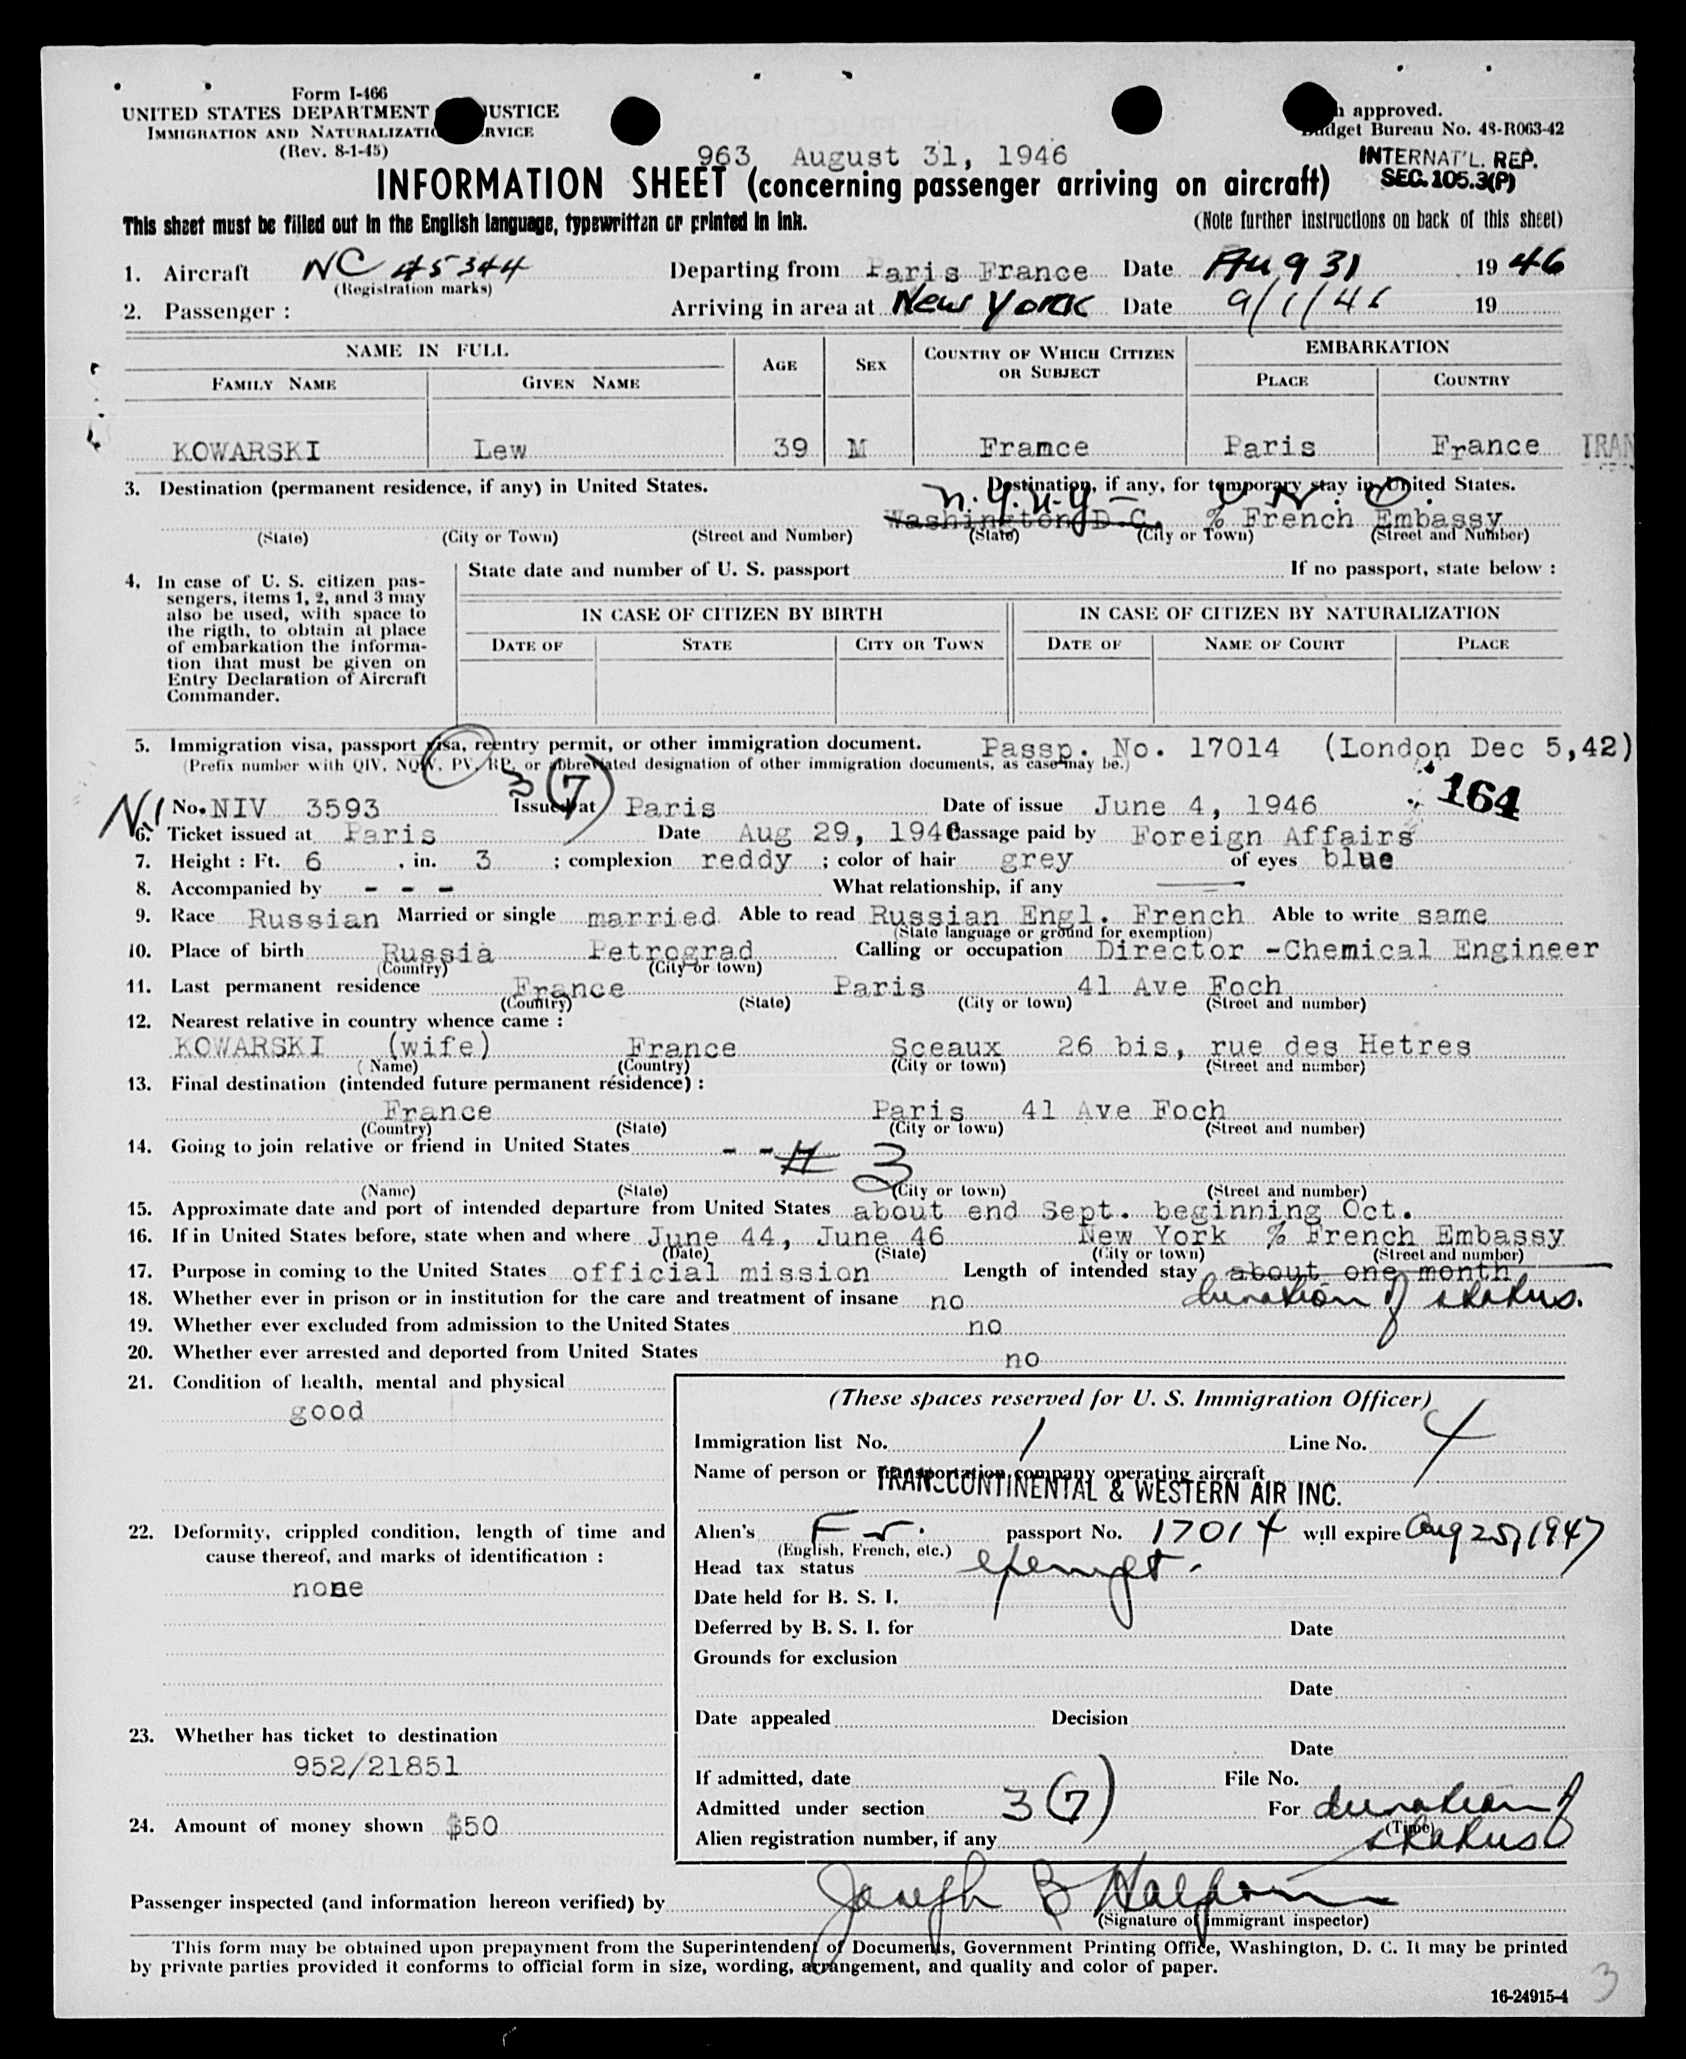 Form I-466
UNITED STATES DEPARTMENT JUSTICE
IMMIGRATION AND NATURALIZATION SERVICE
(Rev. 8-1-45)
approved.
Budget Bureau No. 43-R063-42
INTERNAT'L. REP.
SEC. 105.3(P)
963 August 31, 1946
INFORMATION SHEET (concerning passenger arriving on aircraft)
This sheet must be filled out in the English language, typewritten or printed in ink. (Note further instructions on back of this sheet)
1. Aircraft NC 45344 Departing from Paris France Date Aug 31 1946
(Registration marks)
2. Passenger : Arriving in area at New York Date 9/1/46 19
NAME IN FULL AGE SEX COUNTRY OF WHICH CITIZEN OR SUBJECT EMBARKATION
FAMILY NAME GIVEN NAME PLACE COUNTRY
KOWARSKI Lew 39 M Framce Paris France TRAN
3. Destination (permanent residence, if any) in United States. Destination, if any, for temporary stay in United States.
N.Y. N.Y.
Washington D.C. % French Embassy
(State) (City or Town) (Street and Number) (State) (City or Town) (Street and Number)
4. In case of U. S. citizen pas-
sengers, items 1, 2, and 3 may
also be used, with space to
the rigth, to obtain at place
of embarkation the informa-
tion that must be given on
Entry Declaration of Aircraft
Commander.
State date and number of U. S. passport If no passport, state below :
IN CASE OF CITIZEN BY BIRTH IN CASE OF CITIZEN BY NATURALIZATION
DATE OF STATE CITY OR TOWN DATE OF NAME OF COURT PLACE
5. Immigration visa, passport visa, reentry permit, or other immigration document. Passp. No. 17014 (London Dec 5,42)
(Prefix number with QIV, NQIV, PV, RP, or abbreviated designation of other immigration documents, as case may be.)
3(7) 164
No. NIV 3593 Issued at Paris Date of issue June 4, 1946
6. Ticket issued at Paris Date Aug 29, 1946 Passage paid by Foreign Affairs
7. Height : Ft. 6 , in. 3 ; complexion reddy ; color of hair grey of eyes blue
8. Accompanied by - - - What relationship, if any
9. Race Russian Married or single married Able to read Russian Engl. French Able to write same
(State language or ground for exemption)
10. Place of birth Russia Petrograd Calling or occupation Director -Chemical Engineer
(Country) (City or town)
11. Last permanent residence France Paris 41 Ave Foch
(Country) (State) (City or town) (Street and number)
12. Nearest relative in country whence came :
KOWARSKI (wife) France Sceaux 26 bis, rue des Hetres
(Name) (Country) (City or town) (Street and number)
13. Final destination (intended future permanent résidence) :
France Paris 41 Ave Foch
(Country) (State) (City or town) (Street and number)
14. Going to join relative or friend in United States - - # 3
(Name) (State) (City or town) (Street and number)
15. Approximate date and port of intended departure from United States about end Sept. beginning Oct.
16. If in United States before, state when and where June 44, June 46 New York % French Embassy
(Date) (State) (City or town) (Street and number)
17. Purpose in coming to the United States official mission Length of intended stay about one month
18. Whether ever in prison or in institution for the care and treatment of insane no duration of status.
19. Whether ever excluded from admission to the United States no
20. Whether ever arrested and deported from United States no
21. Condition of health, mental and physical
good
22. Deformity, crippled condition, length of time and
cause thereof, and marks of identification :
none
23. Whether has ticket to destination
952/21851
24. Amount of money shown $50
(These spaces reserved for U. S. Immigration Officer)
Immigration list No. 1 Line No. 4
Name of person or transportation company operating aircraft
TRANSCONTINENTAL & WESTERN AIR INC.
Alien's Fr. passport No. 17014 will expire Aug 25, 1947
(English, French, etc.)
Head tax status exempt.
Date held for B. S. I.
Deferred by B. S. I. for Date
Grounds for exclusion
Date
Date appealed Decision
Date
If admitted, date File No.
Admitted under section 3(7) For duration of
(Time)
Alien registration number, if any status
Passenger inspected (and information hereon verified) by Joseph B
(Signature of immigrant inspector)
This form may be obtained upon prepayment from the Superintendent of Documents, Government Printing Office, Washington, D. C. It may be printed
by private parties provided it conforms to official form in size, wording, arrangement, and quality and color of paper.
16-24915-4
3